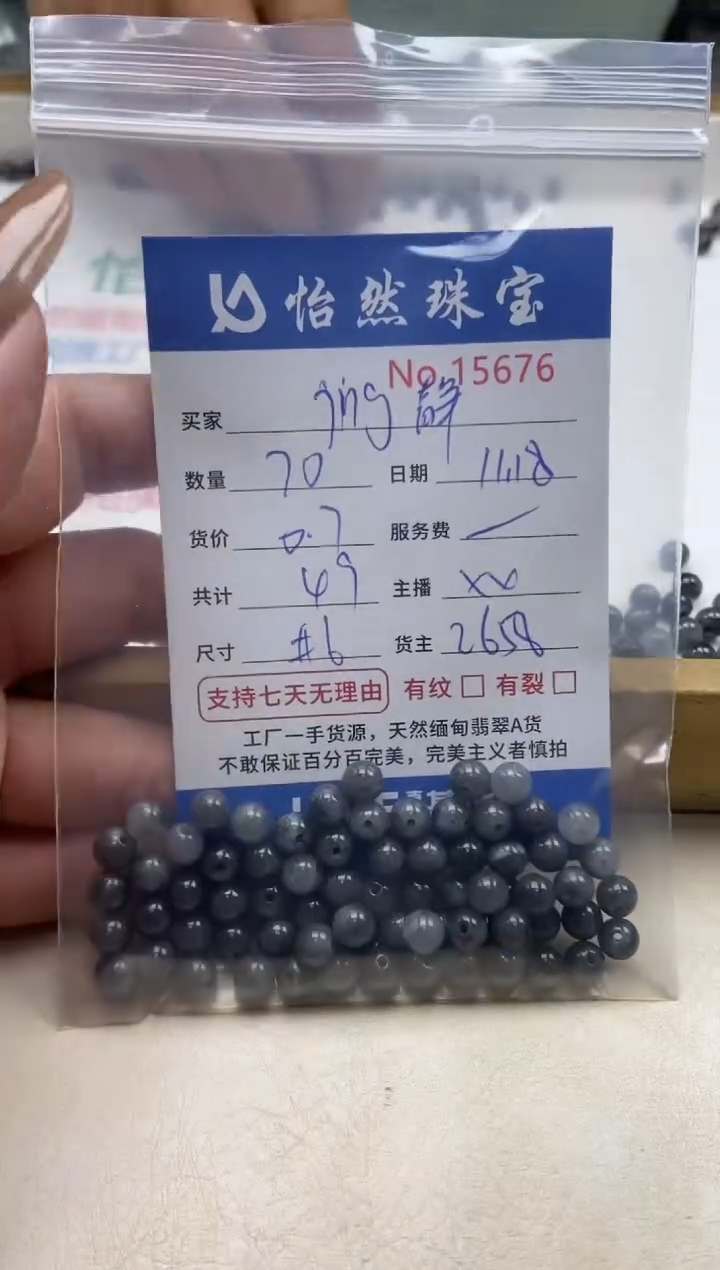 怡然珠宝
No.15676
买家 jing 静
数量 70 日期 11.18
货价 0.7 服务费
共计 49 主播 xx
尺寸 #6 货主 2658
支持七天无理由 有纹 有裂
工厂一手货源，天然缅甸翡翠A货
不敢保证百分百完美，完美主义者慎拍